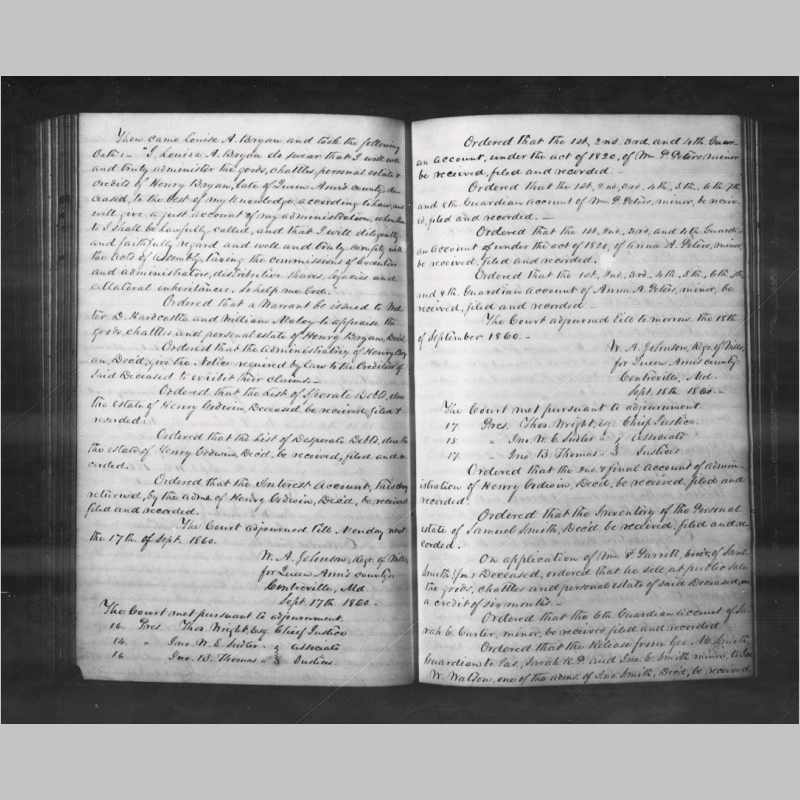 Then came Louisa A. Bryan and took the following
Oath:- "I, Louisa A. Bryan do swear that I will well
and truly administer the goods, chattles, personal estate &
credits of Henry Bryan, late of Queen Ann's county, de-
ceased, to the best of my knowledge, according to law, and
will give a just account of my administration, when there-
to I shall be lawfully called, and that I will diligently
and faithfully regard and well and truly comply with
the Acts of Assembly, taxing the commissions of Executors
and administrators, distributive shares, legacies and
collateral inheritances. So help me God."
Ordered that a Warrant be issued to
D. Hardcastle and William to appraise the
goods, chattles and personal estate of Henry Bryan, Dec'd.
Ordered that the Administratrix of Henry Bry-
an, Dec'd, give the Notice required by law to the Creditors of
Said Deceased to exibit their claims.-
Ordered that the List of Sperate Debts, due
the estate of Henry Godwin, Deceased, be received, filed &
recorded.
Ordered that the List of Desperate Debts, due to
the estate of Henry Godwin, Dec'd, be received, filed and re-
corded.
Ordered that the Interest Account, this day
returned, by the adm'r of Henry Godwin, Dec'd, be received
filed and recorded.
The Court adjourned till Monday next
the 17th of Sept. 1860.
W. A. Johnson, Regr. of Wills
for Queen Ann's county,
Centreville, Md.
Sept 17th 1860.
The Court met pursuant to adjournment.
16 Pres. Thos. Wright, Esq. Chief Justice
14 " Jno. W. E. Sudler " } Associate
16 Jno. B. Thomas " } Justices
Ordered that the 1st, 2nd, 3rd, and 4th Guardi-
an account, under the act of 1820, of Wm P. Peters, minor
be received, filed and recorded.-
Ordered that the 1st, 2nd, 3rd, 4th, 5th, 6th, 7th
and 8th Guardian account of Wm P. Peters, minor, be receiv-
ed, filed and recorded.-
Ordered that the 1st, 2nd, 3rd, and 4th Guardi-
an account of under the act of 1820, of Anna A. Peters, minor,
be received, filed and recorded.
Ordered that the 1st, 2nd, 3rd, 4th, 5th, 6th, 7th
and 8th Guardian account of Anna A. Peters, minor, be
received, filed and recorded.
The Court adjourned till to morrow the 18th
of September 1860.-
W. A. Johnson, Regr. of Wills,
for Queen Ann's county
Centreville, Md.
Sept. 18th 1860.-
The Court met pursuant to adjournment
17 Pres. Thos. Wright, Esq. Chief Justice.
15 " Jno. W. E. Sudler " } Associate
17 " Jno. B. Thomas " } Justices
Ordered that the 2nd & final account of admin-
istration of Henry Godwin, Dec'd, be received, filed and
recorded.
Ordered that the Inventory of the Personal
estate of Samuel Smith, Dec'd be received, filed and re-
corded.
On application of Wm. Jarrell, of Saml
Smith, Deceased, ordered that he sell at public sale
the goods, chattles and personal estate of said Deceased, on
a credit of six months.-
Ordered that the 6th Guardian account of Sa-
rah E. Carter, minor, be received filed and recorded
Ordered that the Release from Geo. M. Smith,
Guardian to Jas, Sarah R. D. and Jno. E. Smith minors, to Jno.
W. Waldon, one of the adm'rs. of Jno. Smith, Dec'd, be received